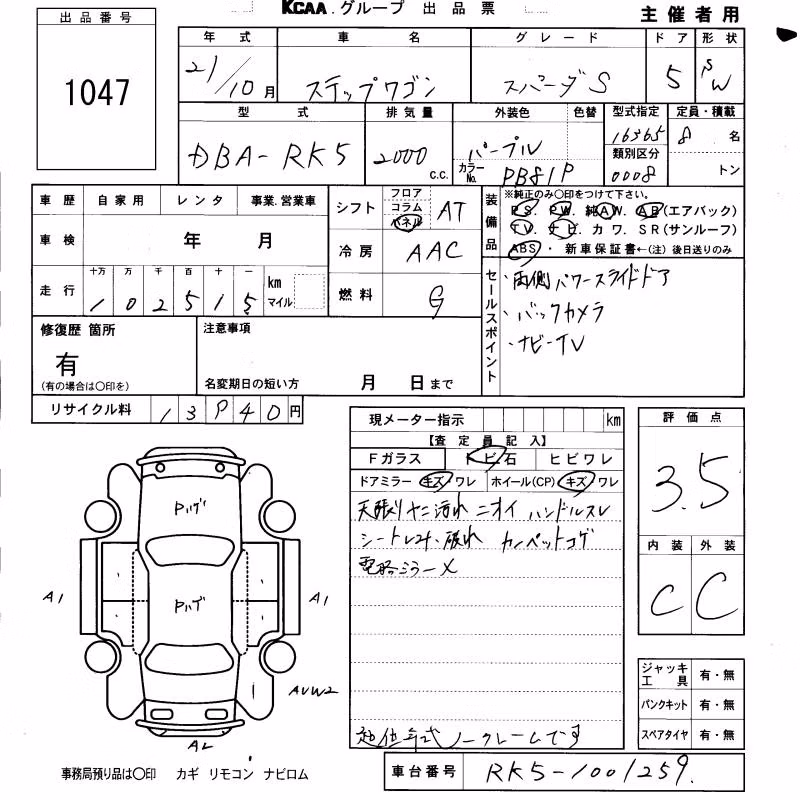 KCAA.グループ 出品票
主催者用
出品番号
1047
年式 車名 グレード ドア 形状
21/10月 ステップワゴン スパーダS 5 SW
型式 排気量 外装色 色替 型式指定 定員・積載
DBA-RK5 2000c.c. パープル 16365 8名
カラーNo. PB81P 類別区分 0008 トン
車歴 自家用 レンタ 事業.営業車
車検 年 月
走行 十万 万 千 百 十 一 km マイル
1 0 2 5 1 5
シフト フロア コラム パネル AT
冷房 AAC
燃料 G
装備品
※純正のみ〇印をつけて下さい。
PS. PW. 純AW. AB(エアバック)
TV. ナビ. カワ. SR(サンルーフ)
ABS・新車保証書←(注)後日送りのみ
セールスポイント
・両側パワースライドドア
・バックカメラ
・ナビ-TV
修復歴 箇所
有
(有の場合は〇印を)
注意事項
名変期日の短い方 月 日まで
リサイクル料 13940円
現メーター指示 km
【査定員記入】
Fガラス トビ石 ヒビワレ
ドアミラー キズ ワレ ホイール(CP) キズ ワレ
天張りヤニ汚れ ニオイ ハンドルスレ
シート 破れ カーペットコゲ
電格ミラー×
年式ノークレームです
評価点
3.5
内装 外装
C C
ジャッキ工具 有・無
パンクキット 有・無
スペアタイヤ 有・無
Pハゲ
Pハゲ
A1
A1
AUW2
AL
事務局預り品は〇印 カギ リモコン ナビロム
車台番号 RK5-1001259.